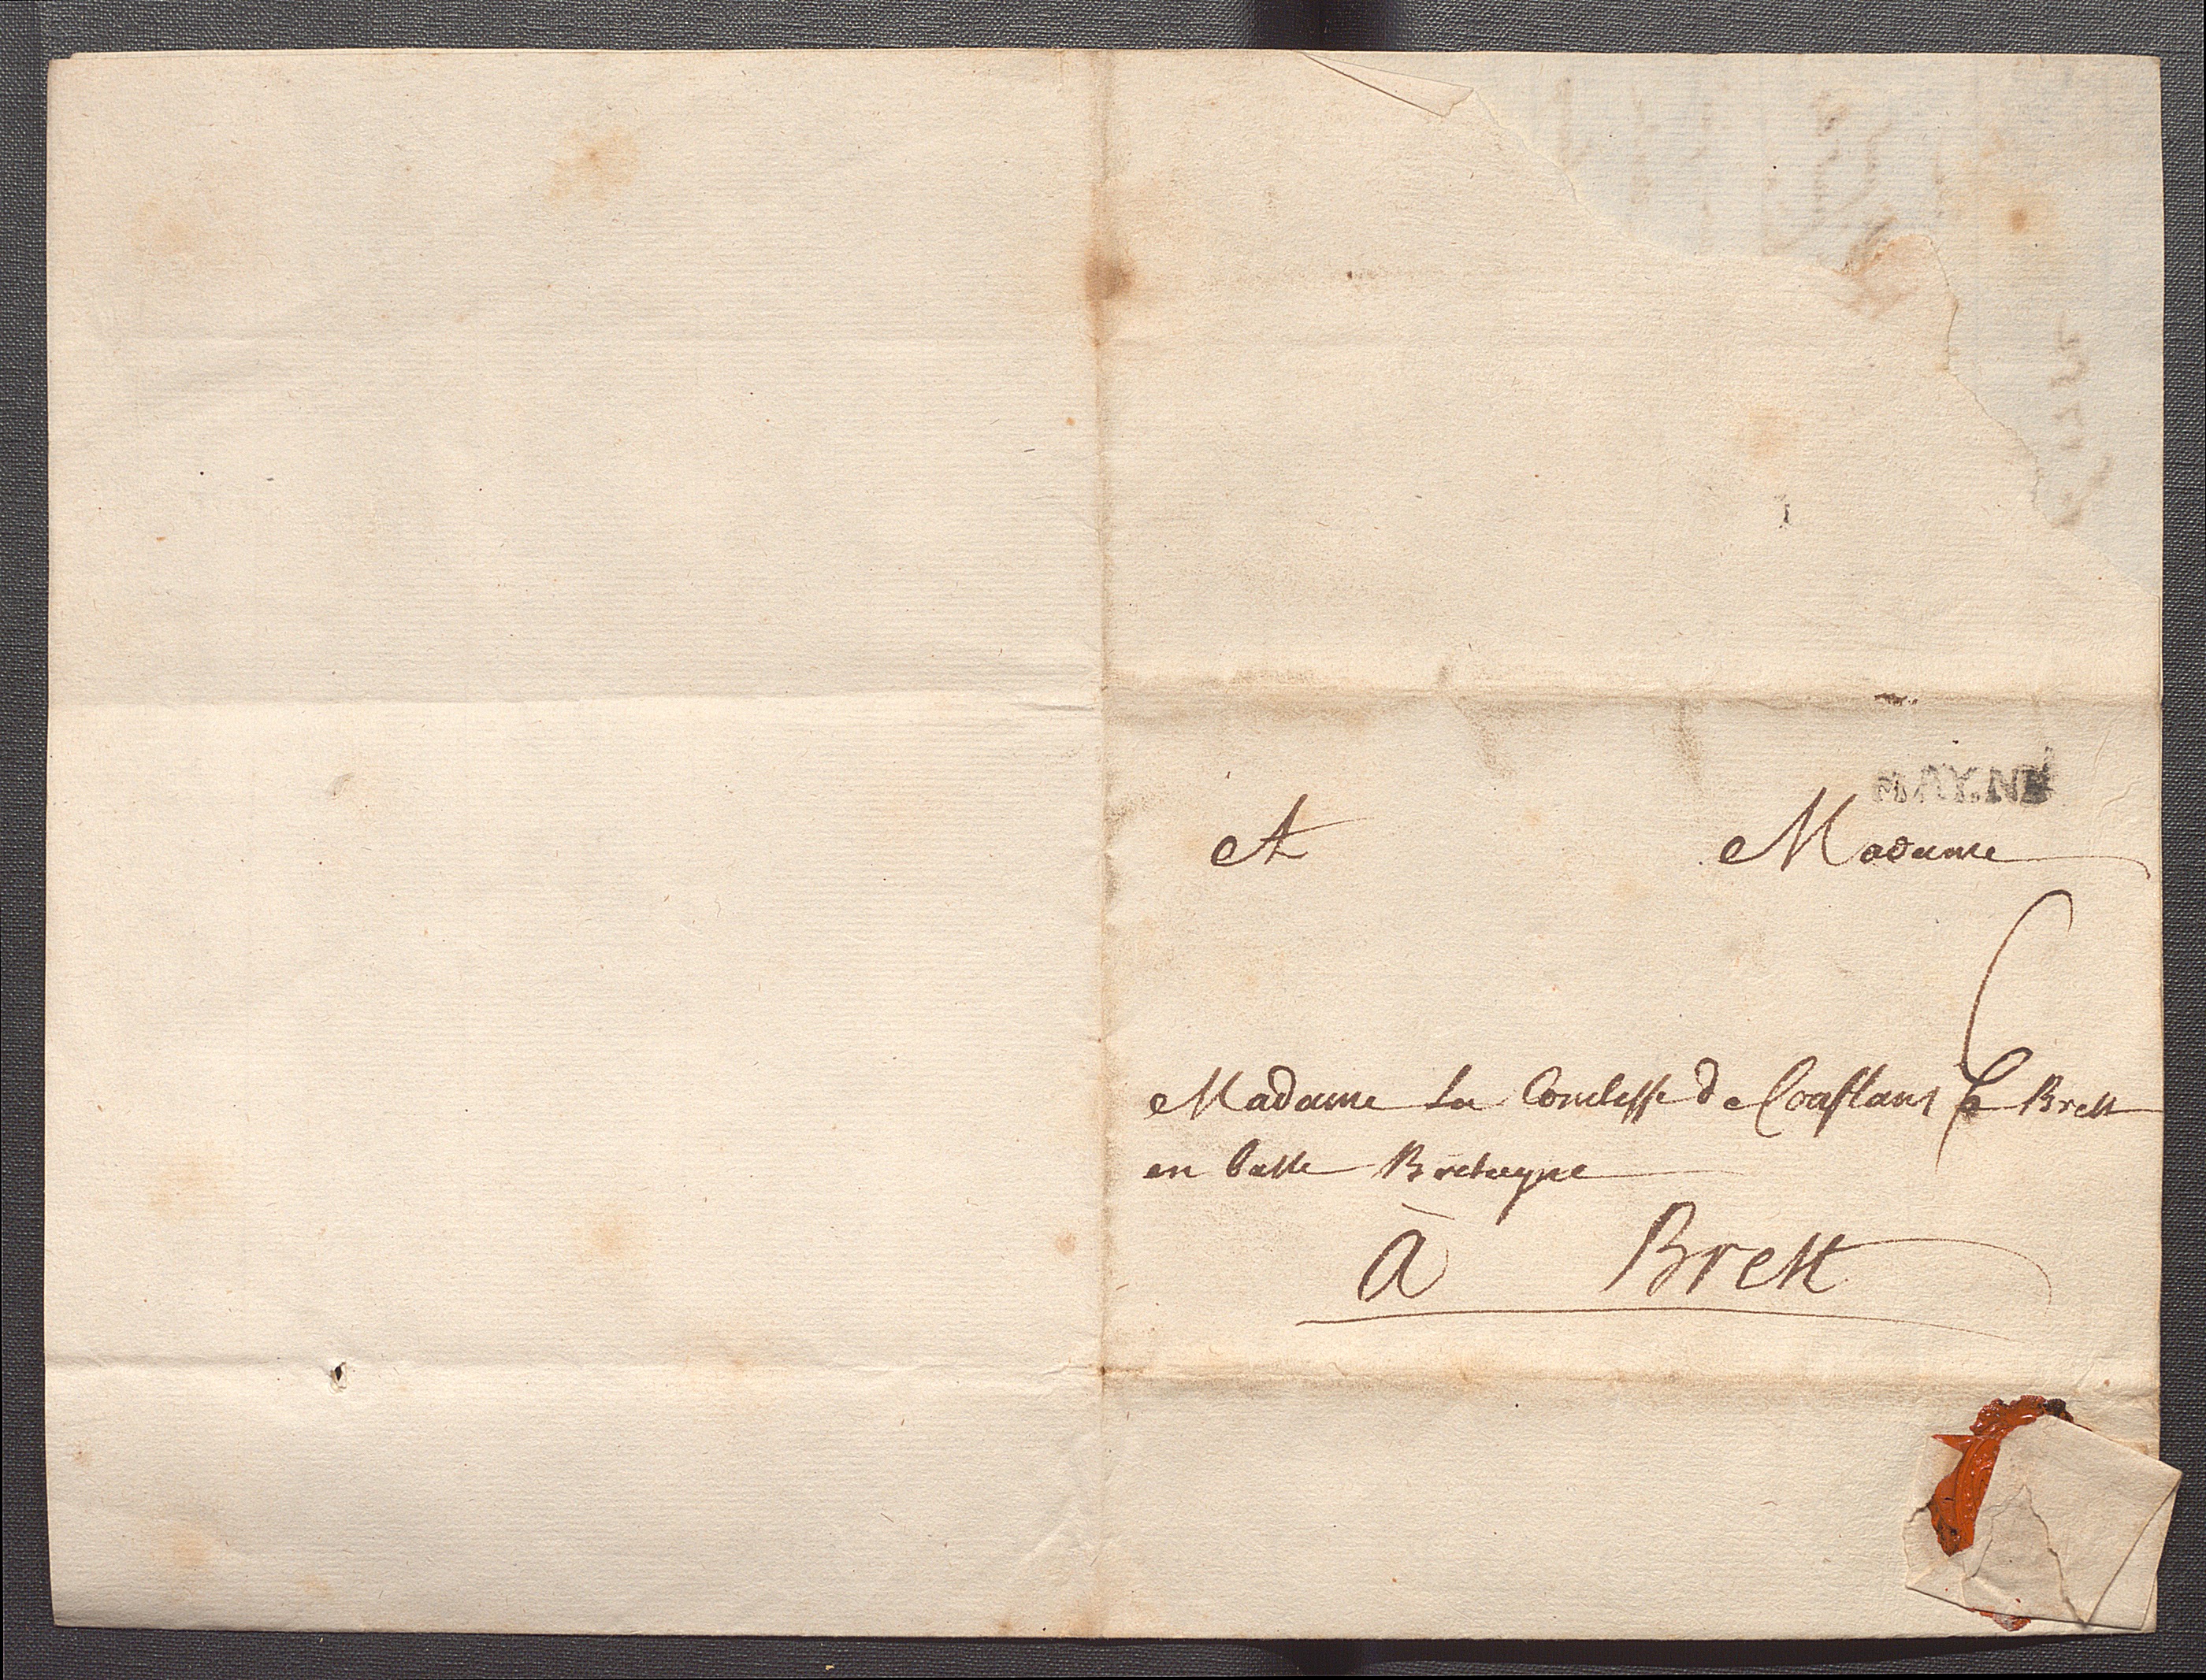 MAYENNE
A Madame
6
Madame La Comtesse de Coaslans à Brest
en basse Bretagne
à Brest